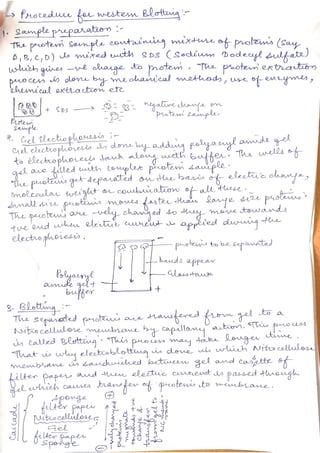 → Procedure for western Blotting :-
1. Sample preparation :-
The protein sample containing mixture of protein (say
A, B, C, D) is mixed with SDS (Sodium Dodecyl Sulfate)
which gives -ve charge to protein. The protein extraction
process is done by mechanical methods, use of enzymes,
chemical extraction etc
+ SDS → negative charge on
protein sample.
Protein
sample
2. Gel Electrophoresis :-
Gel electrophoresis is done by adding polyacryl amide gel
to electrophoresis tank along with buffer. The wells of
gel are filled with complex protein sample.
The proteins get separated on the basis of electric charge,
molecular weight or combination of all these.
Small size proteins moves faster than large size proteins.
The proteins are -vely charged so they move towards
+ve end when electric current is applied during the
electrophoresis.
-
→ proteins to be separated
→ bands appear
→ Glass tank
Polyacryl
amide gel +
buffer
+
3. Blotting :-
The separated proteins are transfered from gel to a
Nitrocellulose membrane by capillary action. This process
is called Blotting. This process may take longer time.
That is why electroblotting is done in which Nitrocellulose
membrane is sandwiched between gel and cassette of
filter papers and then electric current is passed through
gel which causes transfer of protein to membrane.
Cascade
Sponge
filter paper
Nitrocellulose
Gel
filter paper
Sponge
+
-
-vely charged
proteins
migrate
towards +ve
charge &
transfer
from gel to